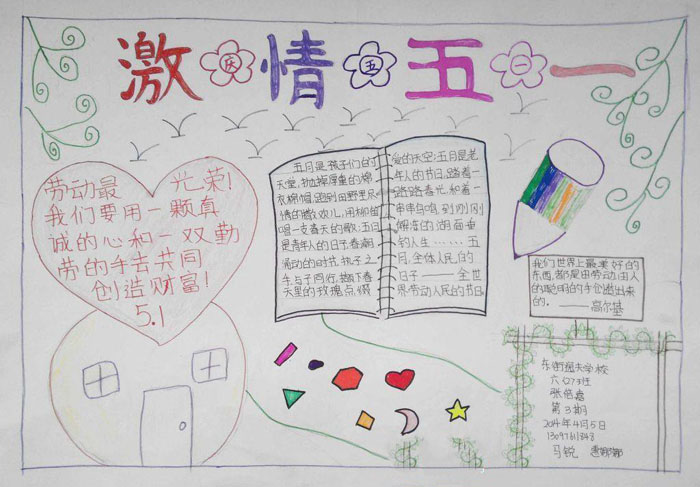 激 庆 情 五 五 一 一
劳动最 光荣!
我们要用一颗真
诚的心和一双勤
劳的手去共同
创造财富!
5.1
五月是孩子们的
天堂,抛掉厚重的棉
衣棉帽,跑到田野里尽
情的撒欢儿,用柳笛
唱一支春天的歌;五月
是青年人的日子,春潮
涌动的时节,执子之
手,与子同行,撷下春
天里的玫瑰点缀
爱的天空;五月是老
年人的节日,踏着一
路踏春光,和着一
串串鸟鸣,到刚刚
解冻的湖面垂
钓人生……五
月,全体人民的
日子——全世
界劳动人民的节日
我们世界上最美好的
东西,都是由劳动、由人
的聪明的手创造出来
的。——高尔基
东街逸夫学校
六(2)班
张倍嘉
第3期
2014年4月5日
马锐